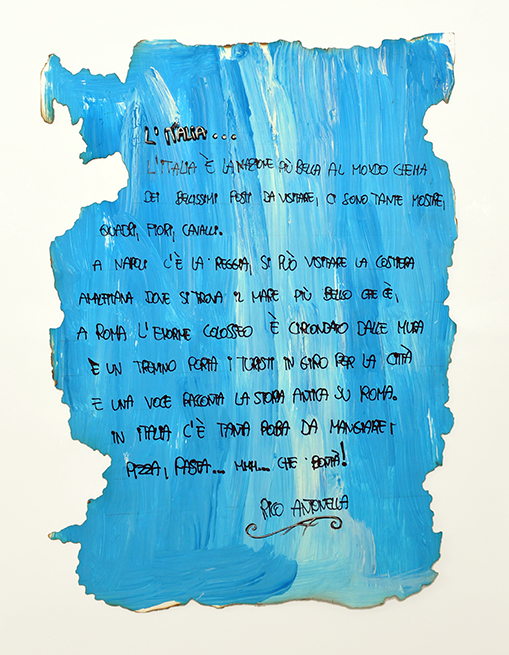 L'ITALIA...
L'ITALIA È LA NAZIONE PIÙ BELLA AL MONDO CHE HA
DEI BELISSIMI POSTI DA VISITARE, CI SONO TANTE MOSTRE,
QUADRI, FIORI, CAVALLI.
A NAPOLI C'È LA REGGIA, SI PUÒ VISITARE LA COSTIERA
AMALFITANA DOVE SI TROVA IL MARE PIÙ BELLO CHE C'È,
A ROMA L'ENORME COLOSSEO È CIRCONDATO DALLE MURA
E UN TRENINO PORTA I TURISTI IN GIRO PER LA CITTÀ
E UNA VOCE RACCONTA LA STORIA ANTICA SU ROMA.
IN ITALIA C'È TANTA ROBA DA MANGIARE:
PIZZA, PASTA... MHH... CHE BONTÀ!
PICO ANTONELLA